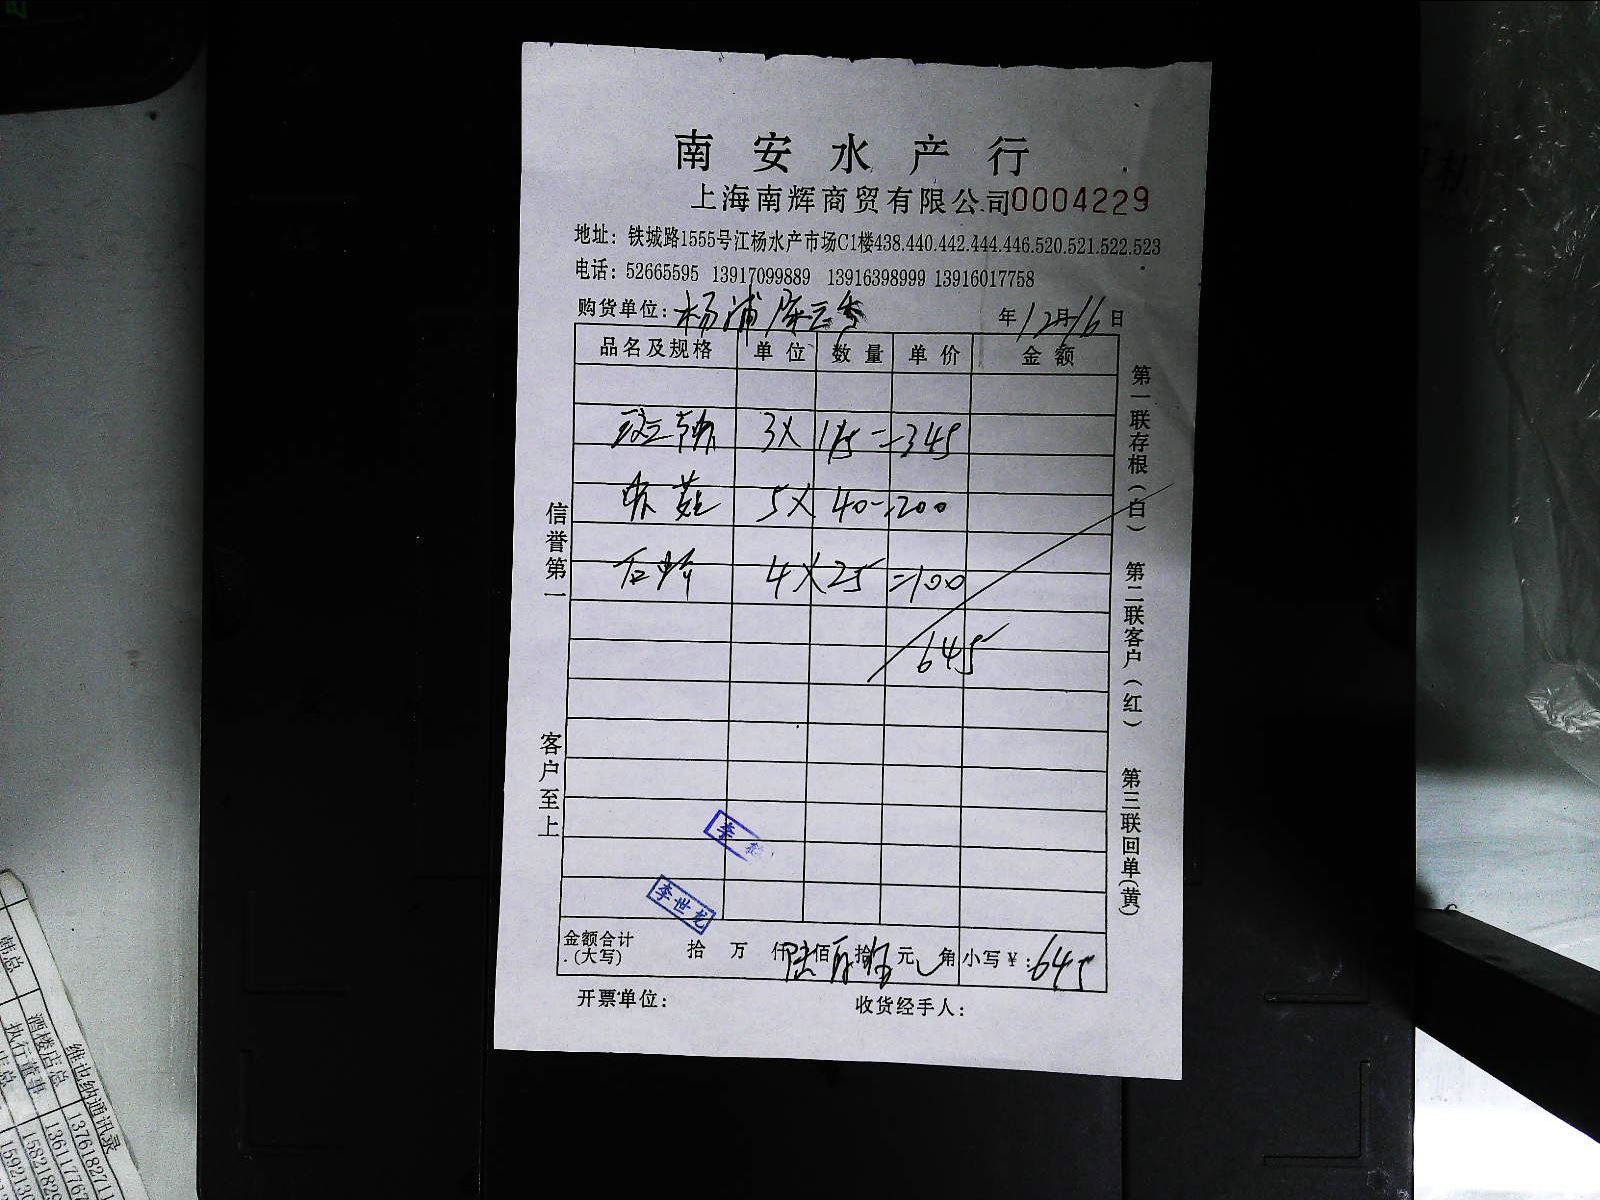 南安水产行
上海南辉商贸有限公司0004229
地址：铁城路1555号江杨水产市场C1楼438.440.442.444.446.520.521.522.523
电话：52665595 13917099889 13916398999 13916017758
购货单位：杨浦 年12月16日
品名及规格 单位 数量 单价 金额
3X 115=345
虾 5X 40=200
4X 25=100
645
金额合计(大写) 拾 万 仟 陆佰 拾 元 角 小写￥：645
开票单位： 收货经手人：
信誉第一
客户至上
第一联存根(白)
第二联客户(红)
第三联回单(黄)
李
李世龙
维也纳通讯录
酒楼店总
执行董事
韩总